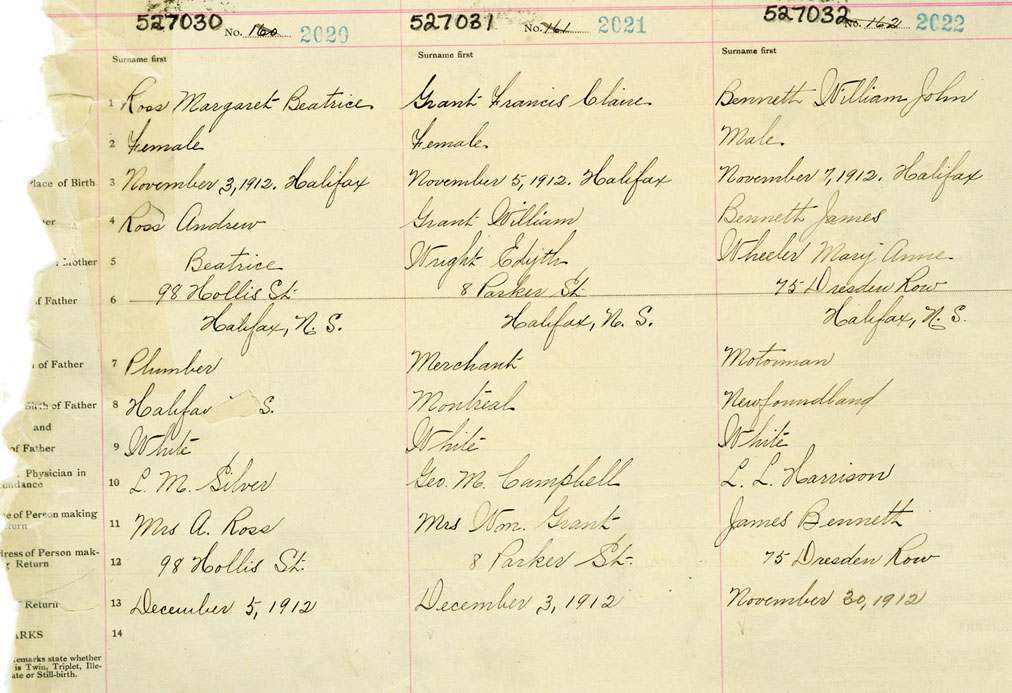 527030 No. 160 2020
527031 No. 161 2021
527032 No. 162 2022
Surname first
Surname first
Surname first
1 Ross Margaret Beatrice
Grant Francis Claire
Bennett William John
2 Female
Female.
Male.
lace of Birth 3 November 3, 1912. Halifax
November 5, 1912. Halifax
November 7, 1912. Halifax
er 4 Ross Andrew
Grant William
Bennett James
other 5 Beatrice
Wright Edyth
Wheeler Mary Anne
of Father 6 98 Hollis St.
8 Parker St.
75 Dresden Row
Halifax, N. S.
Halifax, N. S.
Halifax, N. S.
n of Father 7 Plumber
Merchant
Motorman
Birth of Father 8 Halifa S.
Montreal
Newfoundland
and
of Father 9 White
White
White
Physician in
endance 10 L. M. Silver
Geo. M. Campbell
L. L. Harrison
e of Person making
turn 11 Mrs A. Ross
Mrs Wm. Grant
James Bennett
dress of Person mak-
g Return 12 98 Hollis St.
8 Parker St.
75 Dresden Row
Return 13 December 5, 1912
December 3, 1912
November 30, 1912
ARKS 14
emarks state whether
is Twin, Triplet, Ille-
ate or Still-birth.